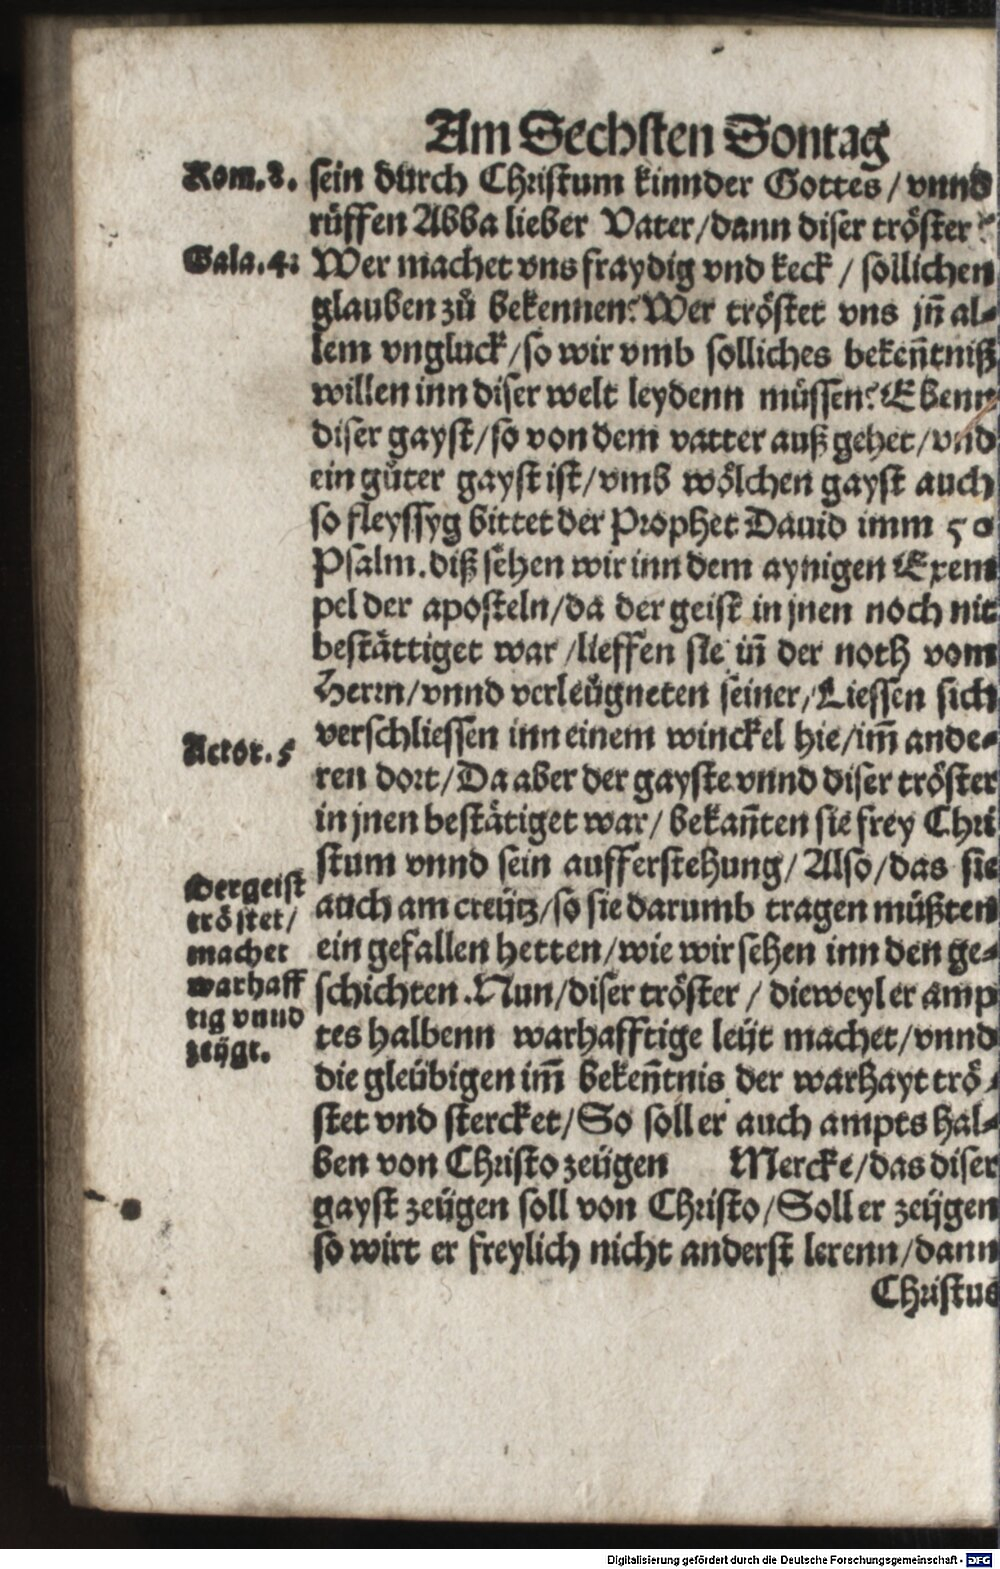 Am Sechsten Sontag
Rom. 8.
sein durch Christum kinnder Gottes / vnnd
rüffen Abba lieber Vater / dann diser tröster
Gala. 4:
Wer machet vns fraydig vnd keck / sollichen
glauben zů bekennen? Wer tröstet vns jn̄ al-
lem vngluck / so wir vmb solliches beken̄tniß
willen inn diser welt leydenn müssen? Ebenn
diser gayst / so von dem vatter auß gehet / vnd
ein gůter gayst ist / vmb wölchen gayst auch
so fleyssyg bittet der Prophet Dauid imm 50
Psalm. diß sehen wir inn dem aynigen Exem
pel der aposteln / da der geist in jnen noch nit
bestättiget war / lieffen sie in̄ der noth vom
Herrn / vnnd verleügneten seiner / Liessen sich
Actor. 5
verschliessen inn einem winckel hie / im̄ ande-
ren dort / Da aber der gayste vnnd diser tröster
in jnen bestätiget war / bekan̄ten sie frey Chri
stum vnnd sein aufferstehung / Also / das sie
auch am creütz / so sie darumb tragen müßten
ein gefallen hetten / wie wir sehen inn den ge-
schichten. Nun / diser tröster / dieweyl er amp
tes halbenn warhafftige leüt machet / vnnd
die gleübigen im̄ beken̄tnis der warhayt trö-
stet vnd stercket / So soll er auch ampts hal-
ben von Christo zeügen Mercke / das diser
gayst zeügen soll von Christo / Soll er zeügen
so wirt er freylich nicht anderst lerenn / dann
Christus
Der geist
tröstet /
machet
warhaff
tig vnnd
zeügt.
Digitalisierung gefördert durch die Deutsche Forschungsgemeinschaft - DFG